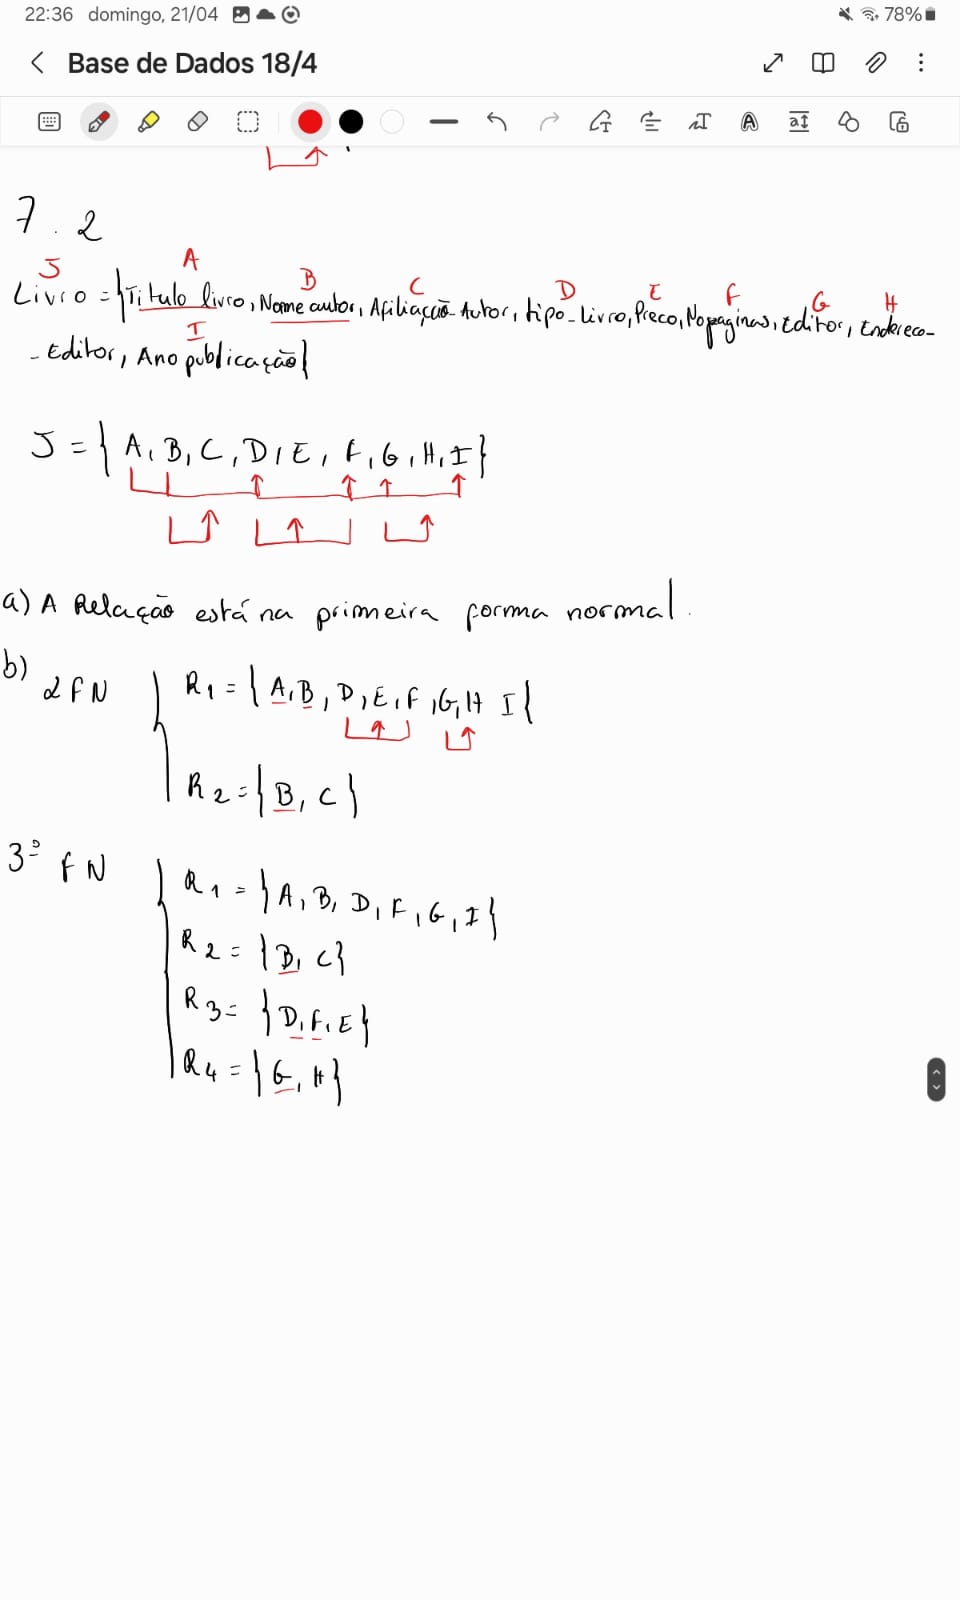 22:36 domingo, 21/04 78%
Base de Dados 18/4
7.2
J A B C D E F G H
Livro = {Titulo livro, Nome autor, Afiliação Autor, tipo_Livro, Preco, No paginas, Editor, Endereco-
I
- Editor, Ano publicação}
J = { A, B, C, D, E, F, G, H, I }
a) A Relação está na primeira forma normal.
b)
2 FN
R1 = { A, B, D, E, F, G, H I {
R2 = { B, C }
3º FN
R1 = } A, B, D, F, G, I }
R2 = { B, C }
R3 = } D, F, E }
R4 = } G, H }